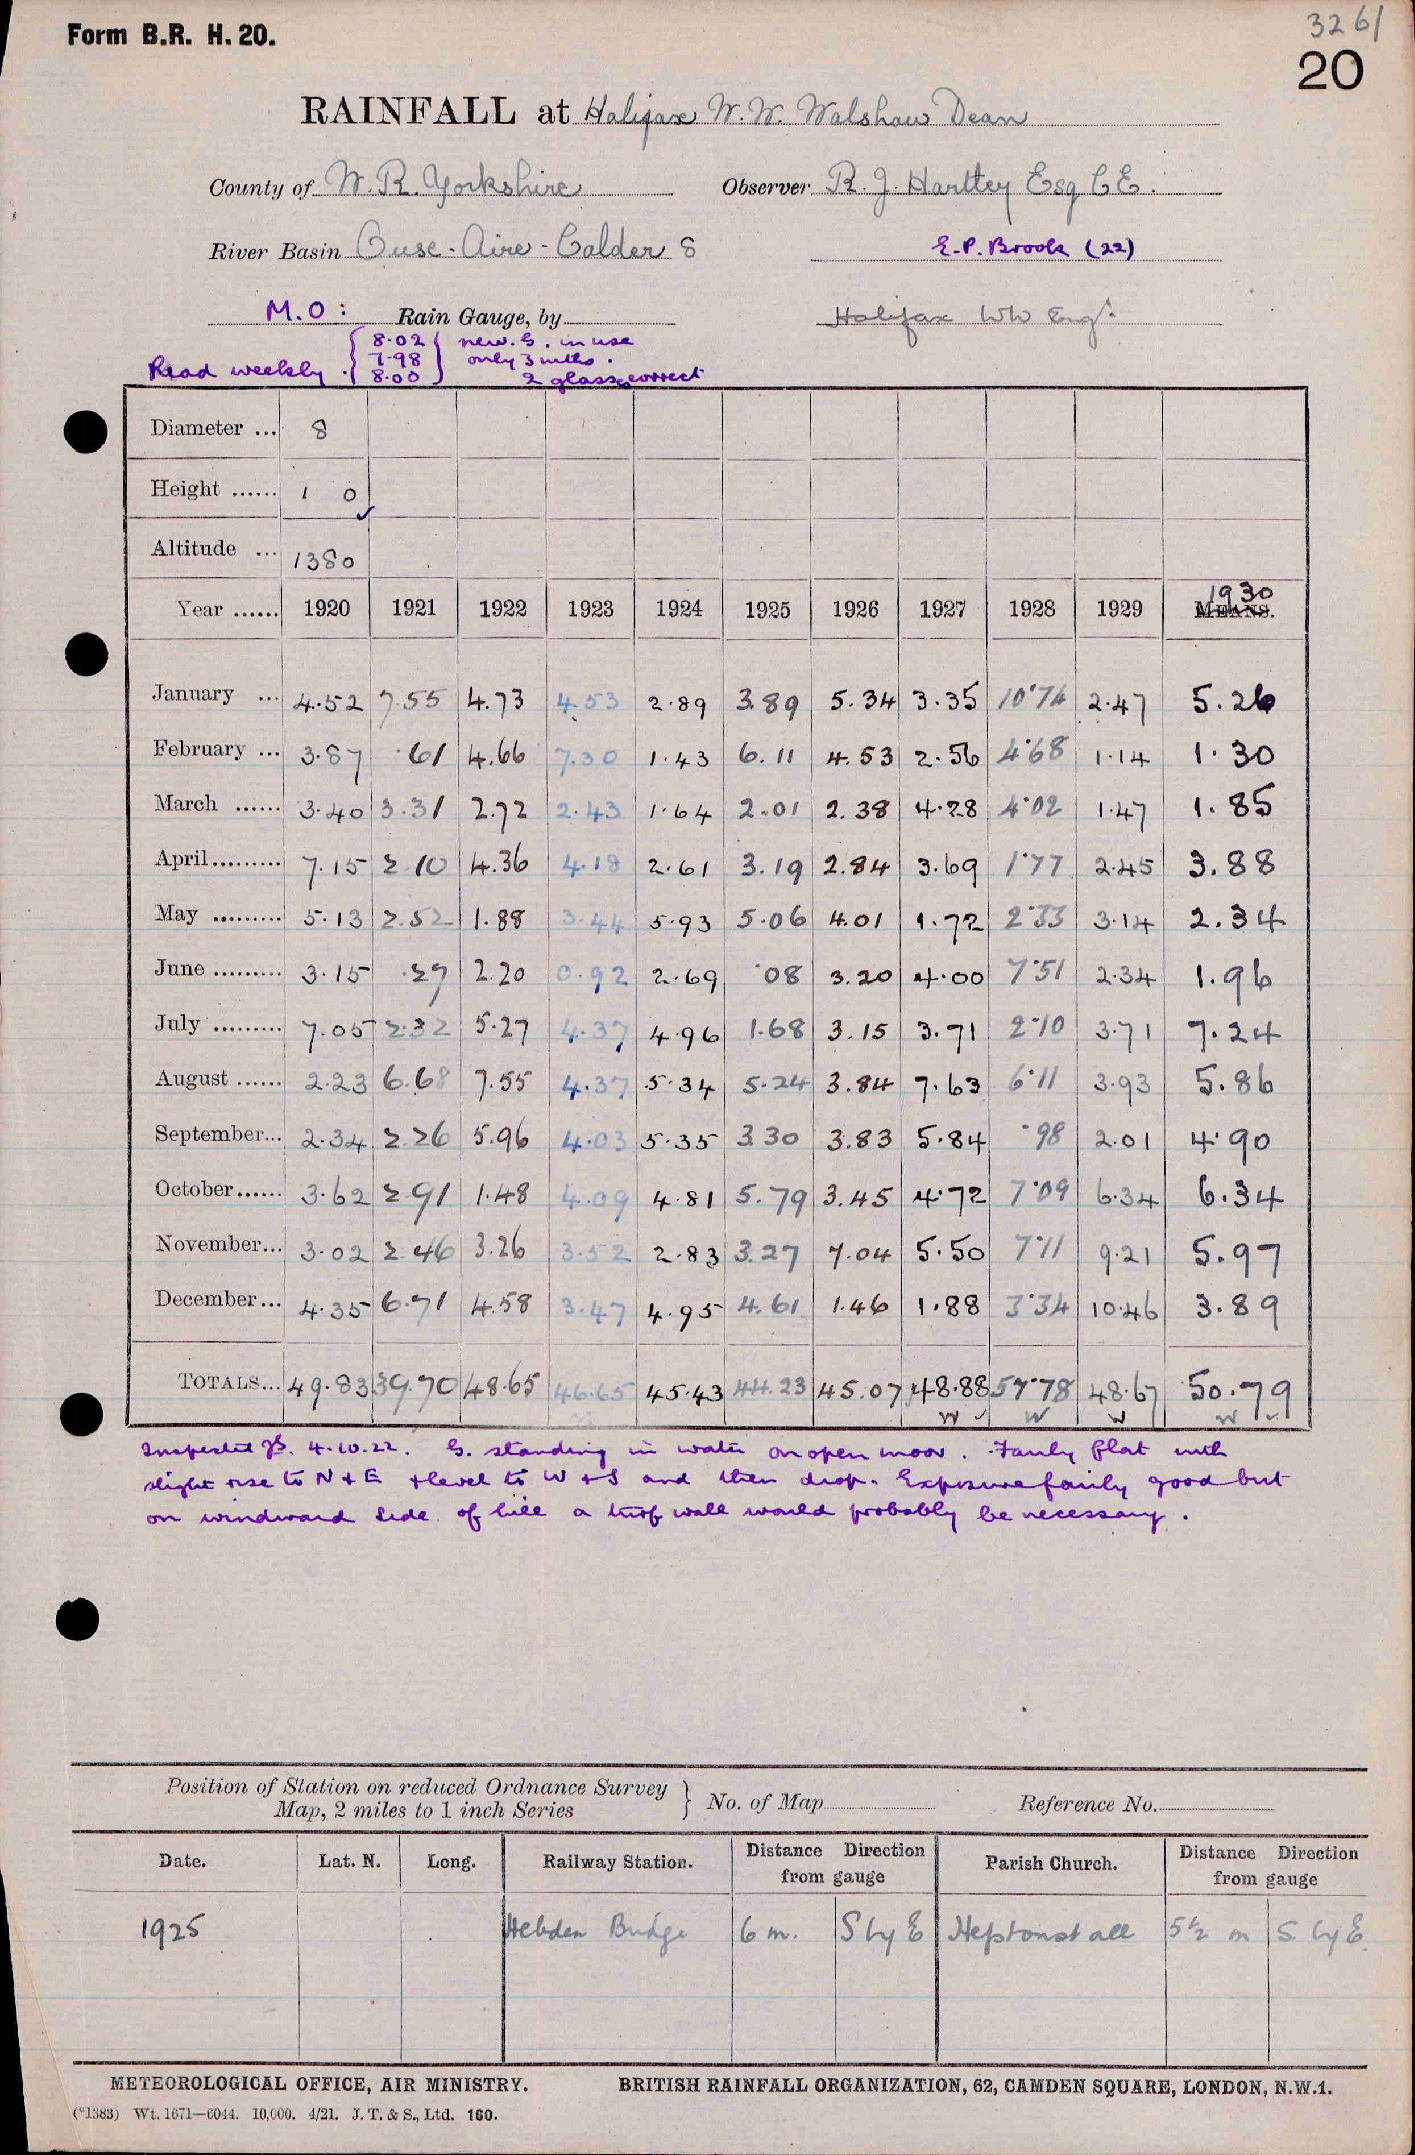 3261
Form B.R. H. 20.
20
RAINFALL at Halifax W.W. Walshaw Dean
County of W. R. Yorkshire Observer R. J. Hartley Esq C.E.
River Basin Ouse - Aire - Calder 8 E.P. Brook (22)
M.O: Rain Gauge, by Halifax WW Engr
Read weekly { 8.02 7.98 8.00 } new. G. in use only 3 mths. 2 glasses correct
Diameter ... 8
Height ...... 1 0
Altitude ... 1380
Year ...... 1920 1921 1922 1923 1924 1925 1926 1927 1928 1929 MEANS. 1930
January ... 4.52 7.55 4.73 4.53 2.89 3.89 5.34 3.35 10.74 2.47 5.26
February ... 3.87 .61 4.66 7.30 1.43 6.11 4.53 2.56 4.68 1.14 1.30
March ...... 3.40 3.31 2.72 2.43 1.64 2.01 2.38 4.28 4.02 1.47 1.85
April......... 7.15 2.10 4.36 4.18 2.61 3.19 2.84 3.69 1.77 2.45 3.88
May ......... 5.13 2.52 1.88 3.44 5.93 5.06 4.01 1.72 2.33 3.14 2.34
June ......... 3.15 .27 2.20 0.92 2.69 .08 3.20 4.00 7.51 2.34 1.96
July ......... 7.05 2.32 5.27 4.37 4.96 1.68 3.15 3.71 2.10 3.71 7.24
August ...... 2.23 6.68 7.55 4.37 5.34 5.24 3.84 7.63 6.11 3.93 5.86
September... 2.34 2.26 5.96 4.03 5.35 3.30 3.83 5.84 .98 2.01 4.90
October...... 3.62 2.91 1.48 4.09 4.81 5.79 3.45 4.72 7.09 6.34 6.34
November... 3.02 2.46 3.26 3.52 2.83 3.27 7.04 5.50 7.11 9.21 5.97
December... 4.35 6.71 4.58 3.47 4.95 4.61 1.46 1.88 3.34 10.46 3.89
TOTALS... 49.83 39.70 48.65 46.65 45.43 44.23 45.07 48.88 57.78 48.67 50.79
W W W W
Inspected 4.10.22. G. standing in water on open moor. Fairly flat with
slight rise to N & E & level to W & S and then drop. Exposure fairly good but
on windward side of hill a turf wall would probably be necessary.
Position of Station on reduced Ordnance Survey
Map, 2 miles to 1 inch Series } No. of Map Reference No.
Date. Lat. N. Long. Railway Station. Distance Direction from gauge Parish Church. Distance Direction from gauge
1925 Hebden Bridge 6 m. S by E Heptonstall 5½ m S. by E.
METEOROLOGICAL OFFICE, AIR MINISTRY. BRITISH RAINFALL ORGANIZATION, 62, CAMDEN SQUARE, LONDON, N.W.1.
(*1383) Wt. 1671—6044. 10,000. 4/21. J. T. & S., Ltd. 160.